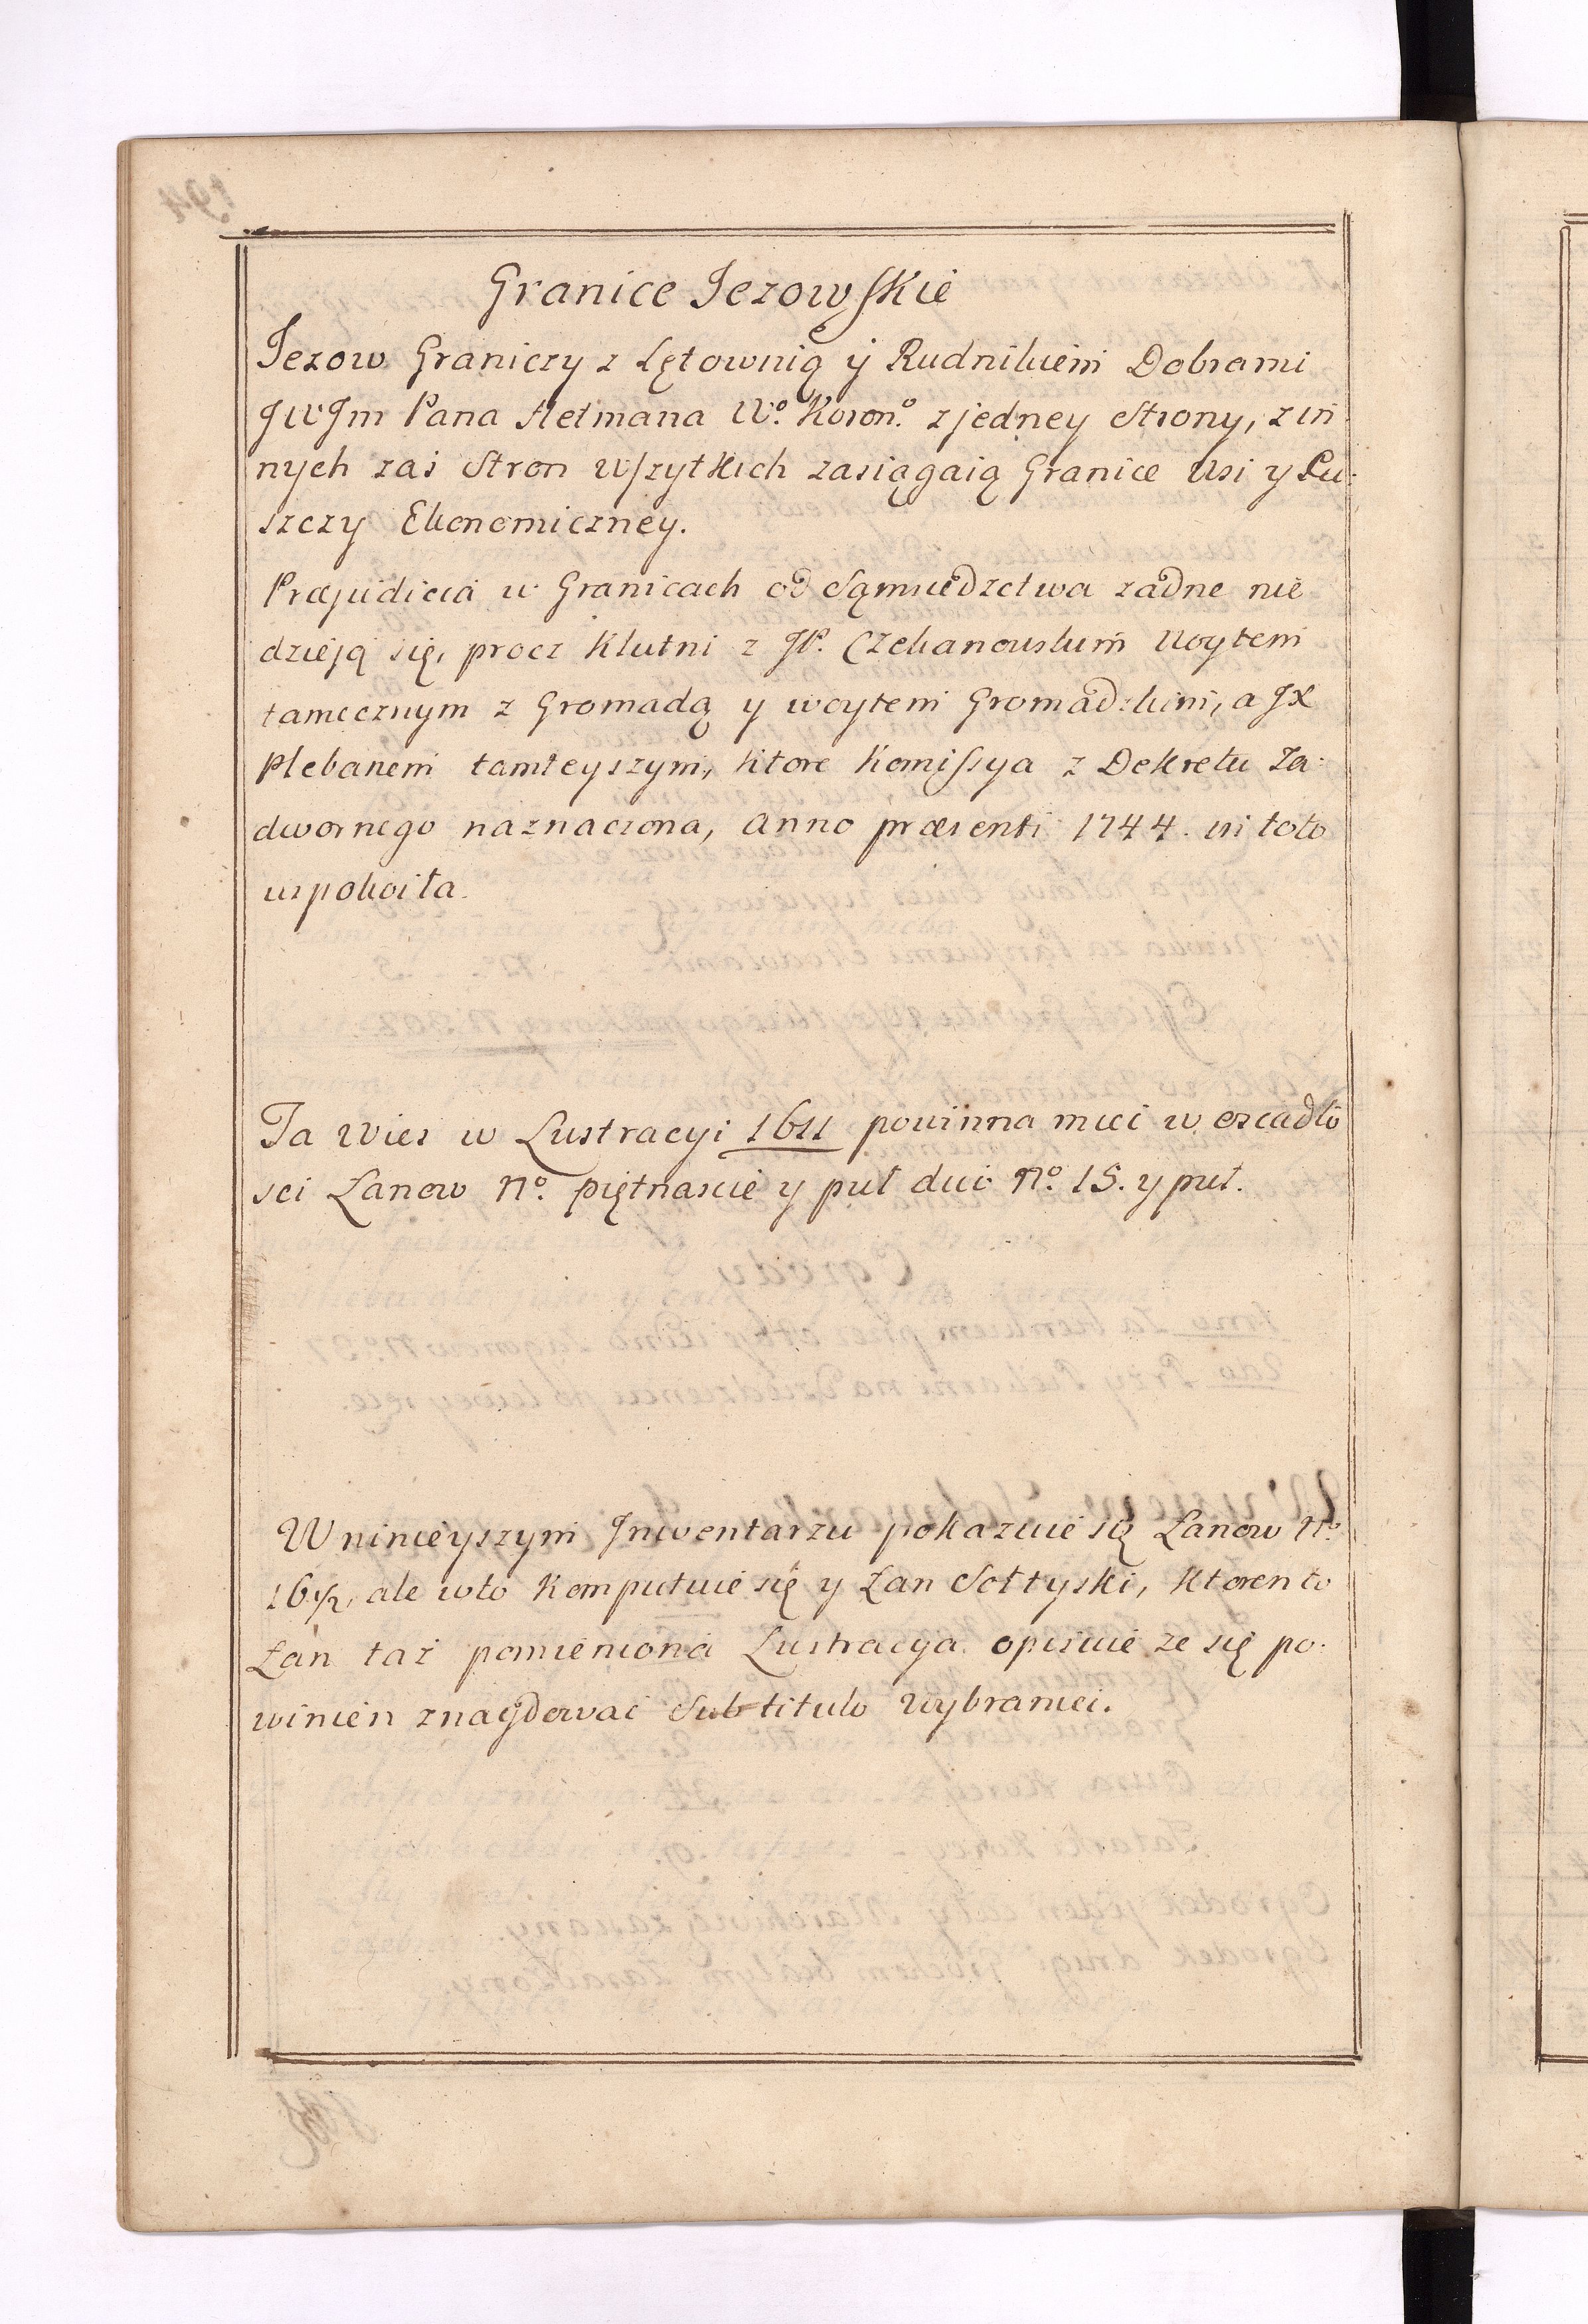 Granice Jezowskie
Jezow Graniczy z Łętownią ÿ Rudnikiem Dobrami
JWJm Pana Hetmana Wo. Koron.o z jedney Strony, z in
nych zaś Stron wszytkich zasiągaią Granice Wsi y Pu:
szczy Ekonomiczney.
Præjudicia w Granicach od Sąmiedzctwa zadne nie
dzieją się, procz Klutni z JP. Czekanowskim Woytem
tamecznym z Gromadą y woytem Gromadzkim, a JX
Plebanem tamteyszym, ktore Komissya z Dekretu Za:
dwornego naznaczona, Anno præsenti 1744. in toto
uspokoiła.
Ta Wies w Lustracyi 1611 powinna mieć w osiadło
sci Łanow No. piętnascie y puł dico No. 15. y puł.
W nimieyszym Inwentarzu pokazuie się Łanow No.
16 1/2, ale w to Komputuie się y Łan Sołtyski, Ktoren to
Łan taż pomieniona Lustracya opisuie ze się po:
winien znaydować Sub titulo Wybraniec.